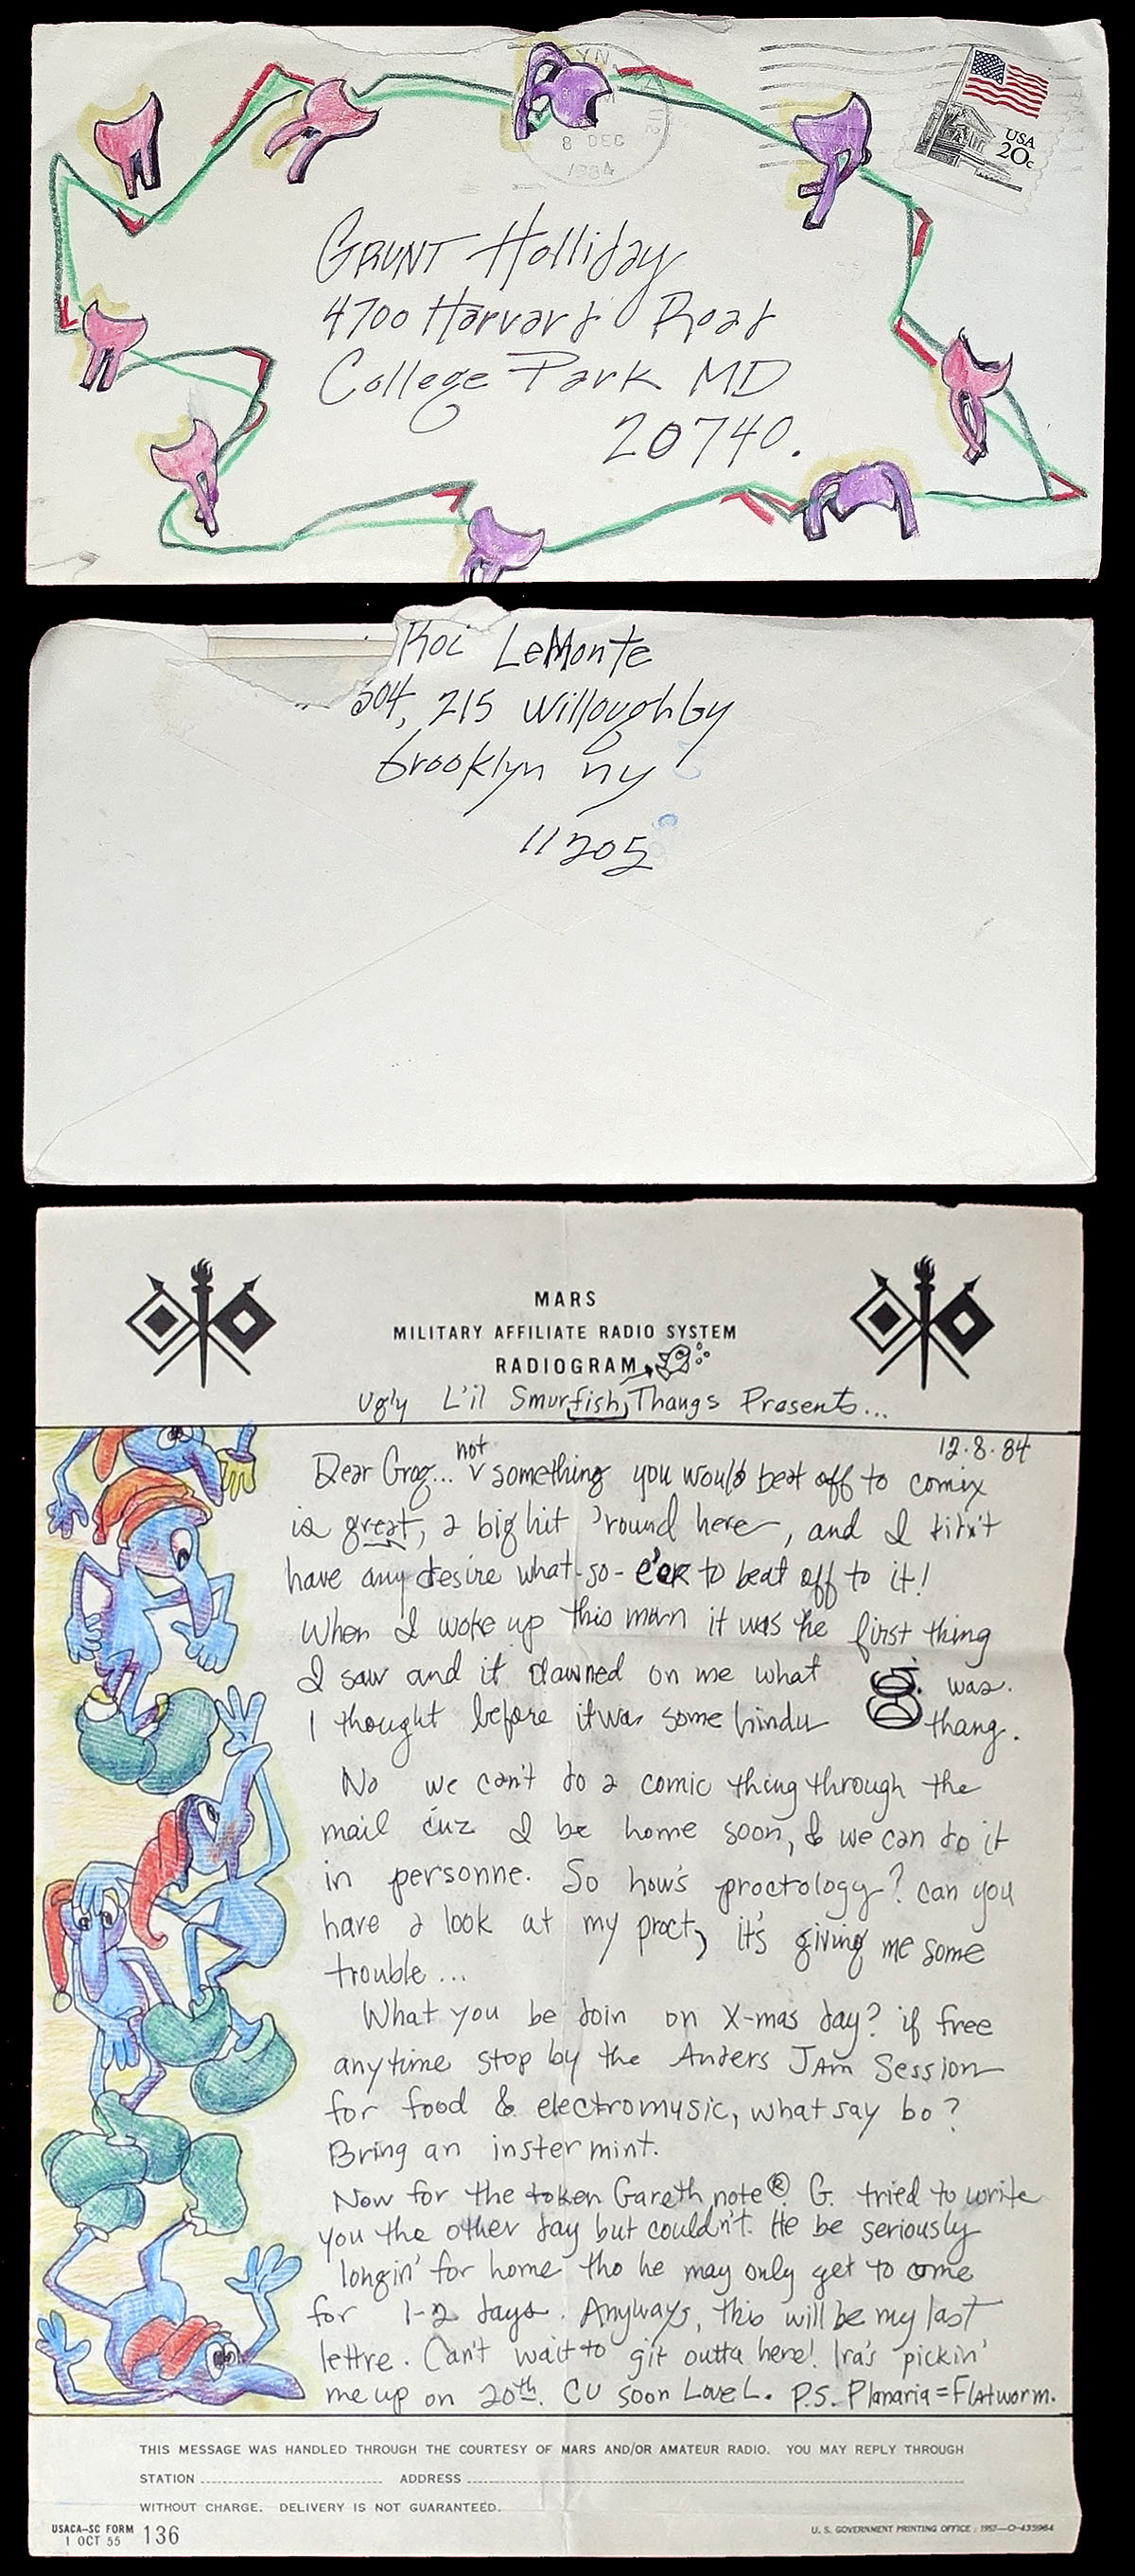 YN,
8 DEC
1984
USA
20c
GRUNT Holliday
4700 Harvard Road
College Park MD
20740.
Roi LeMonte
504, 215 Willoughby
brooklyn ny
11205
MARS
MILITARY AFFILIATE RADIO SYSTEM
RADIOGRAM
Ugly L'il Smurfish, Thangs Presents...
12.8.84
Dear Grog... not something you would beat off to comix
is great, a big hit 'round here, and I didn't
have any desire what-so-e'er to beat off to it!
When I woke up this morn it was the first thing
I saw and it dawned on me what was.
I thought before it was some hindu thang.
No we can't do a comic thing through the
mail cuz I be home soon, & we can do it
in personne. So how's proctology? can you
have a look at my proct, it's giving me some
trouble...
What you be doin on X-mas day? if free
anytime stop by the Anders JAm Session
for food & electromusic, what say bo?
Bring an instermint.
Now for the token Gareth note®. G. tried to write
you the other day but couldn't. He be seriously
longin' for home tho he may only get to come
for 1-2 days. Anyways, this will be my last
lettre. Can't wait to git outta here! Ira's pickin'
me up on 20th. CU soon Love L. P.S. Planaria = Flatworm.
THIS MESSAGE WAS HANDLED THROUGH THE COURTESY OF MARS AND/OR AMATEUR RADIO. YOU MAY REPLY THROUGH
STATION ADDRESS
WITHOUT CHARGE. DELIVERY IS NOT GUARANTEED.
USACA-SC FORM 136
1 OCT 55
U. S. GOVERNMENT PRINTING OFFICE : 1957-O-435964